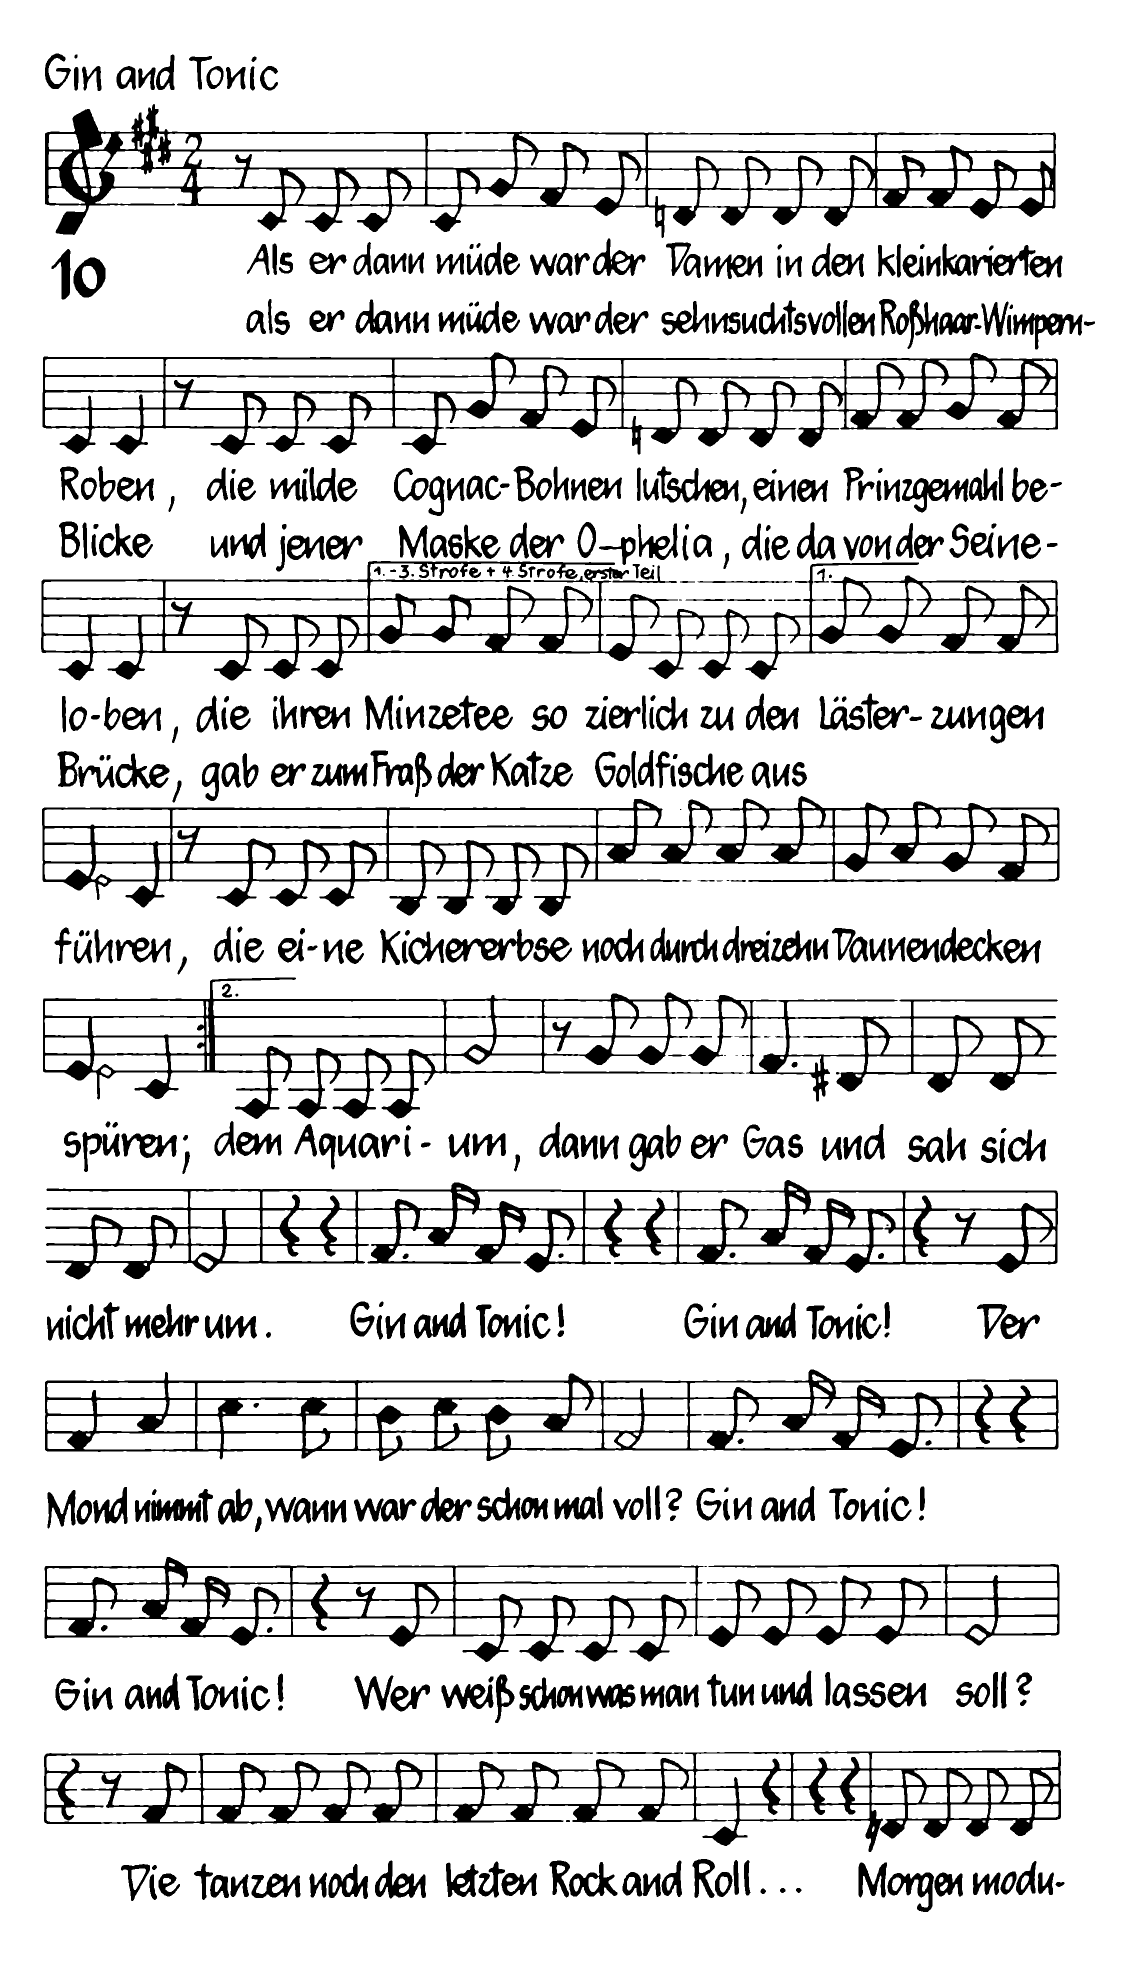 Gin and Tonic
2
4
10
Als er dann müde war der Damen in den kleinkarierten
als er dann müde war der sehnsuchtsvollen Roßhaar-Wimpern-
Roben, die milde Cognac-Bohnen lutschen, einen Prinzgemahl be-
Blicke und jener Maske der O-phelia, die da von der Seine-
1.-3. Strofe + 4. Strofe, erster Teil 1.
lo-ben, die ihren Minzetee so zierlich zu den Läster-zungen
Brücke, gab er zum Fraß der Katze Goldfische aus
führen, die ei-ne Kichererbse noch durch dreizehn Daunendecken
2.
spüren; dem Aquari-um, dann gab er Gas und sah sich
nicht mehr um. Gin and Tonic! Gin and Tonic! Der
Mond nimmt ab, wann war der schon mal voll? Gin and Tonic!
Gin and Tonic! Wer weiß schon was man tun und lassen soll?
Die tanzen noch den letzten Rock and Roll... Morgen modu-